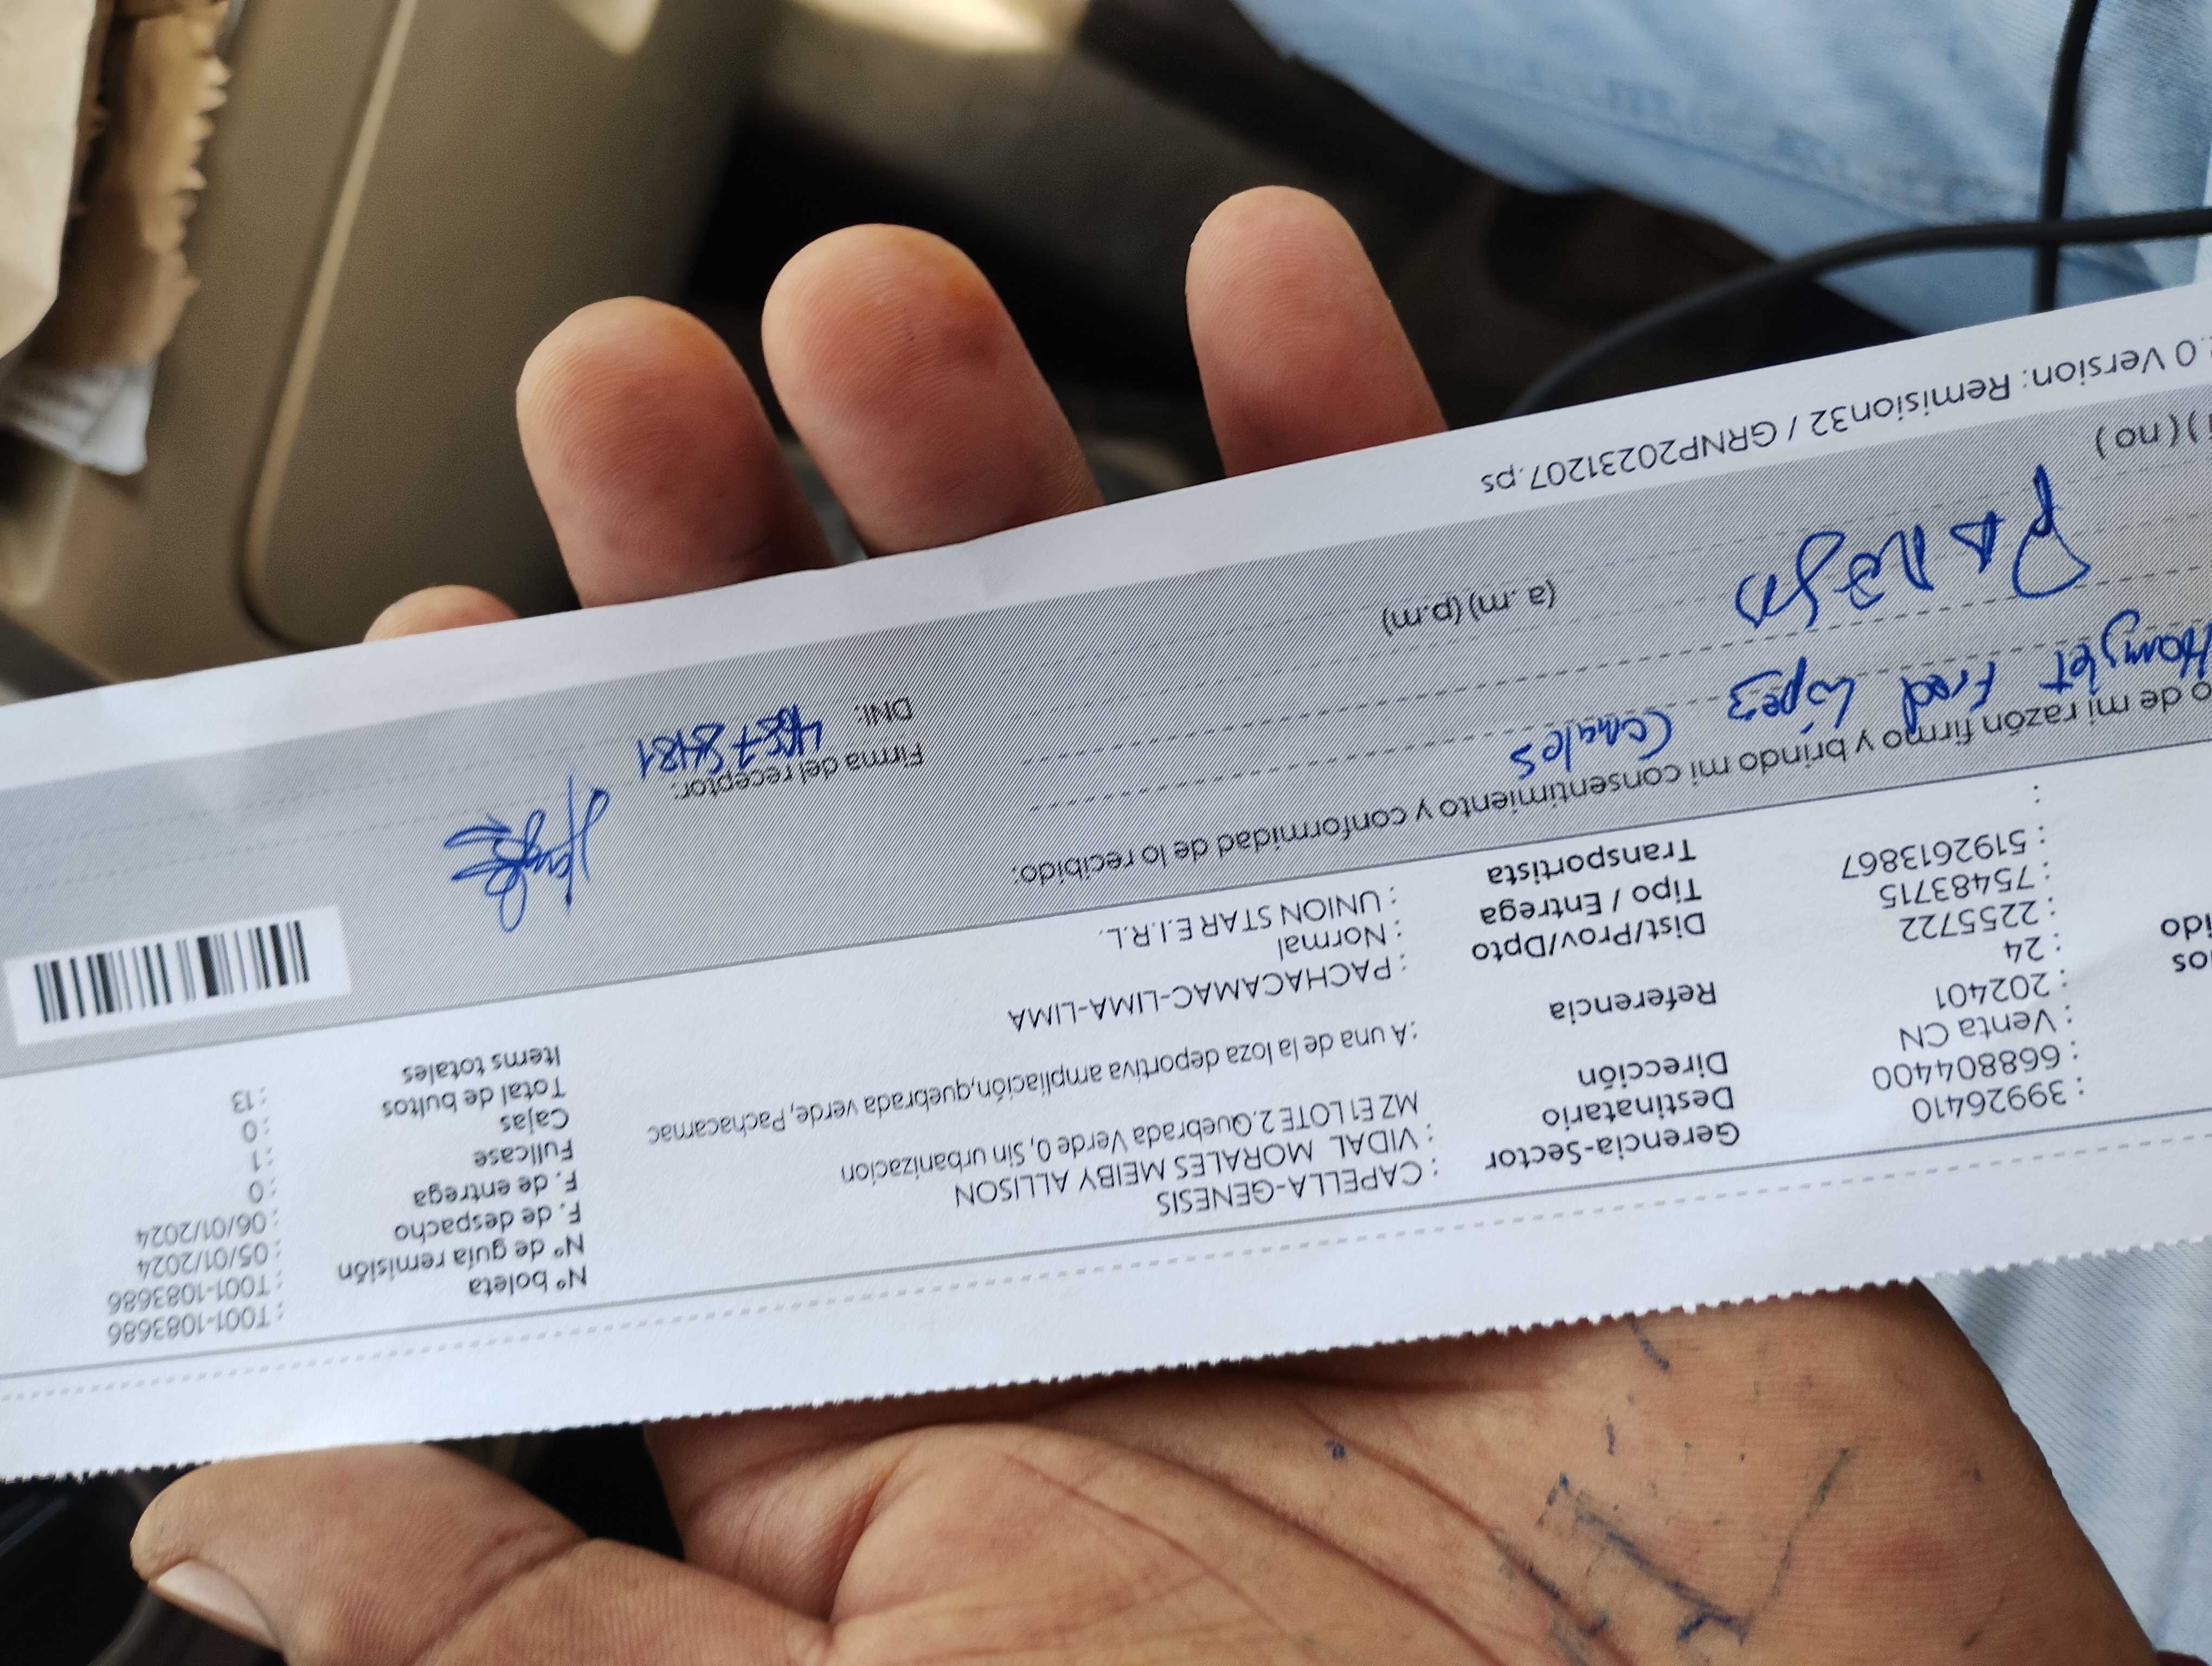 : 39926410
: 668804400
: Venta CN
: 202401
: 24
: 2255722
: 75483715
: 5192613867
:
Gerencia-Sector : CAPELLA-GENESIS
Destinatario : VIDAL MORALES MEIBY ALLISON
Dirección MZ E1 LOTE 2.Quebrada Verde 0, Sin urbanizacion
Referencia : A una de la loza deportiva ampliación,quebrada verde, Pachacamac
Dist/Prov/Dpto : PACHACAMAC-LIMA-LIMA
Tipo / Entrega : Normal
Transportista : UNION STAR E.I.R.L.
N° boleta : T001-1083686
N° de guía remisión : T001-1083686
F. de despacho : 05/01/2024
F. de entrega : 06/01/2024
Fullcase : 0
Cajas : 1
Total de bultos : 0
Items totales : 13
o de mi razón firmo y brindo mi consentimiento y conformidad de lo recibido:
Fred López
Firma del receptor:
DNI:
(a.m) (p.m)
) ( no )
.0 Version: Remision32 / GRNP20231207.ps